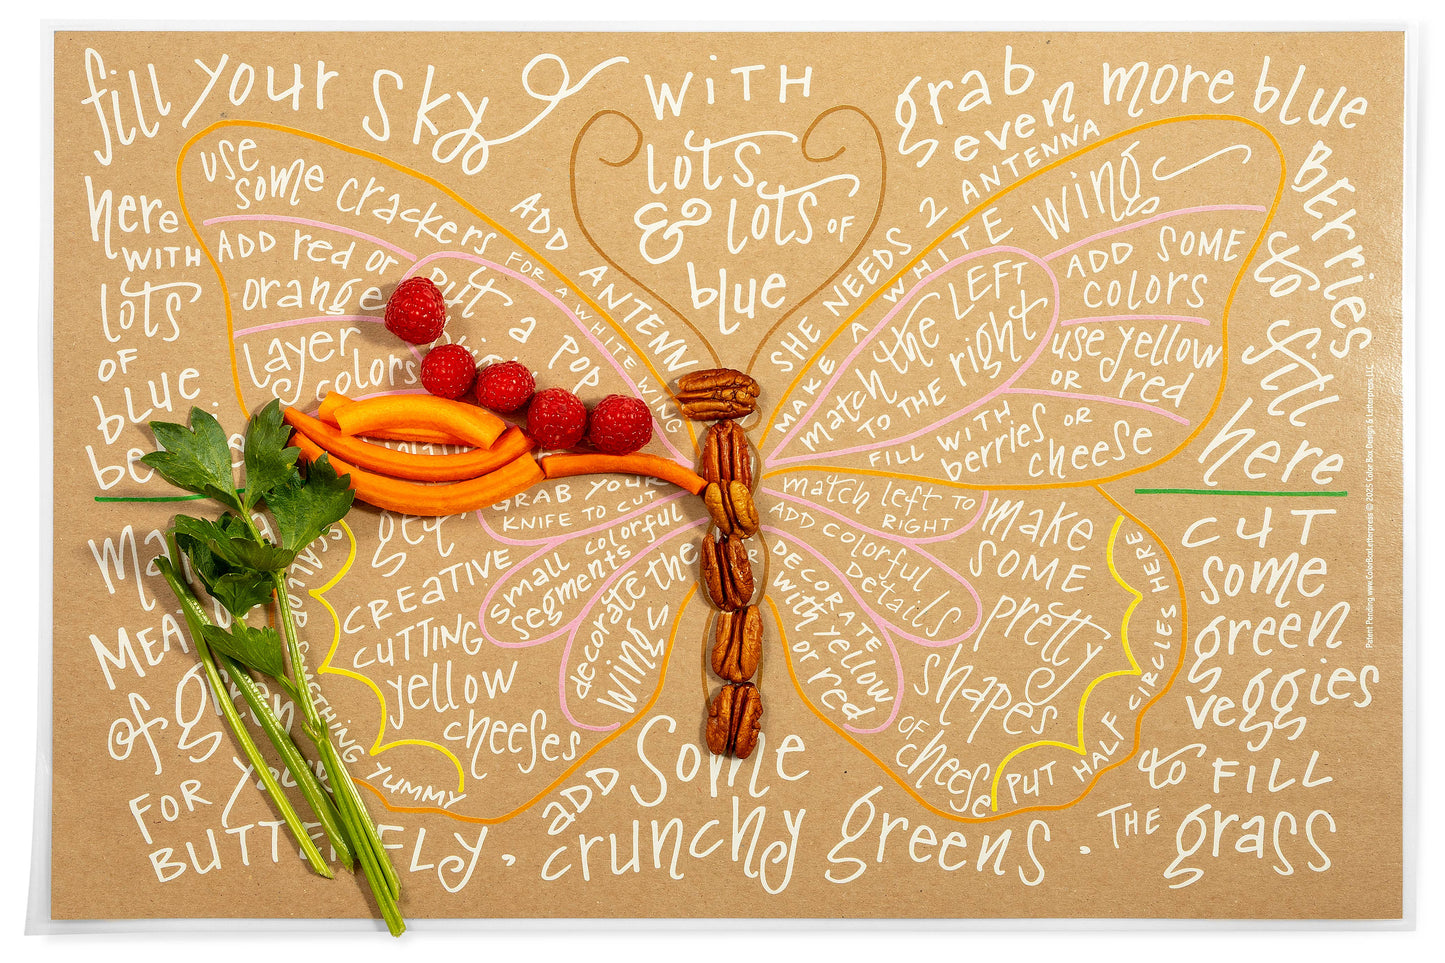 fill your sky
with
lots
& lots of
blue
grab
seven more blue
BERRIES
to
fill
here
here
WITH
lots
OF
blue
use
some crackers
ADD red or
orange
Layer
colors
put
a POP
ADD ANTENN
FOR A WHITE WING
SHE NEEDS 2 ANTENNA
MAKE A WHITE WING
match the LEFT
TO THE right
ADD SOME
colors
use yellow
OR red
FILL WITH
berries OR
cheese
GRAB YOUR
KNIFE TO CUT
small colorful
segments
decorate the
wings
get
CREATIVE
CUTTING
yellow
cheeses
SOMETHING YUMMY
match left TO
RIGHT
ADD COLORFUL
DETAILS
DECORATE
with yellow
or red
make
SOME
pretty
shapes
OF cheese
PUT HALF CIRCLES HERE
of
FOR
BUTTERFLY.
ADD Some
crunchy greens.
CUT
some
green
veggies
to FILL
THE grass
Patent Pending. www.ColorBoxLetterpress © 2025 Color Box Design & Letterpress LLC